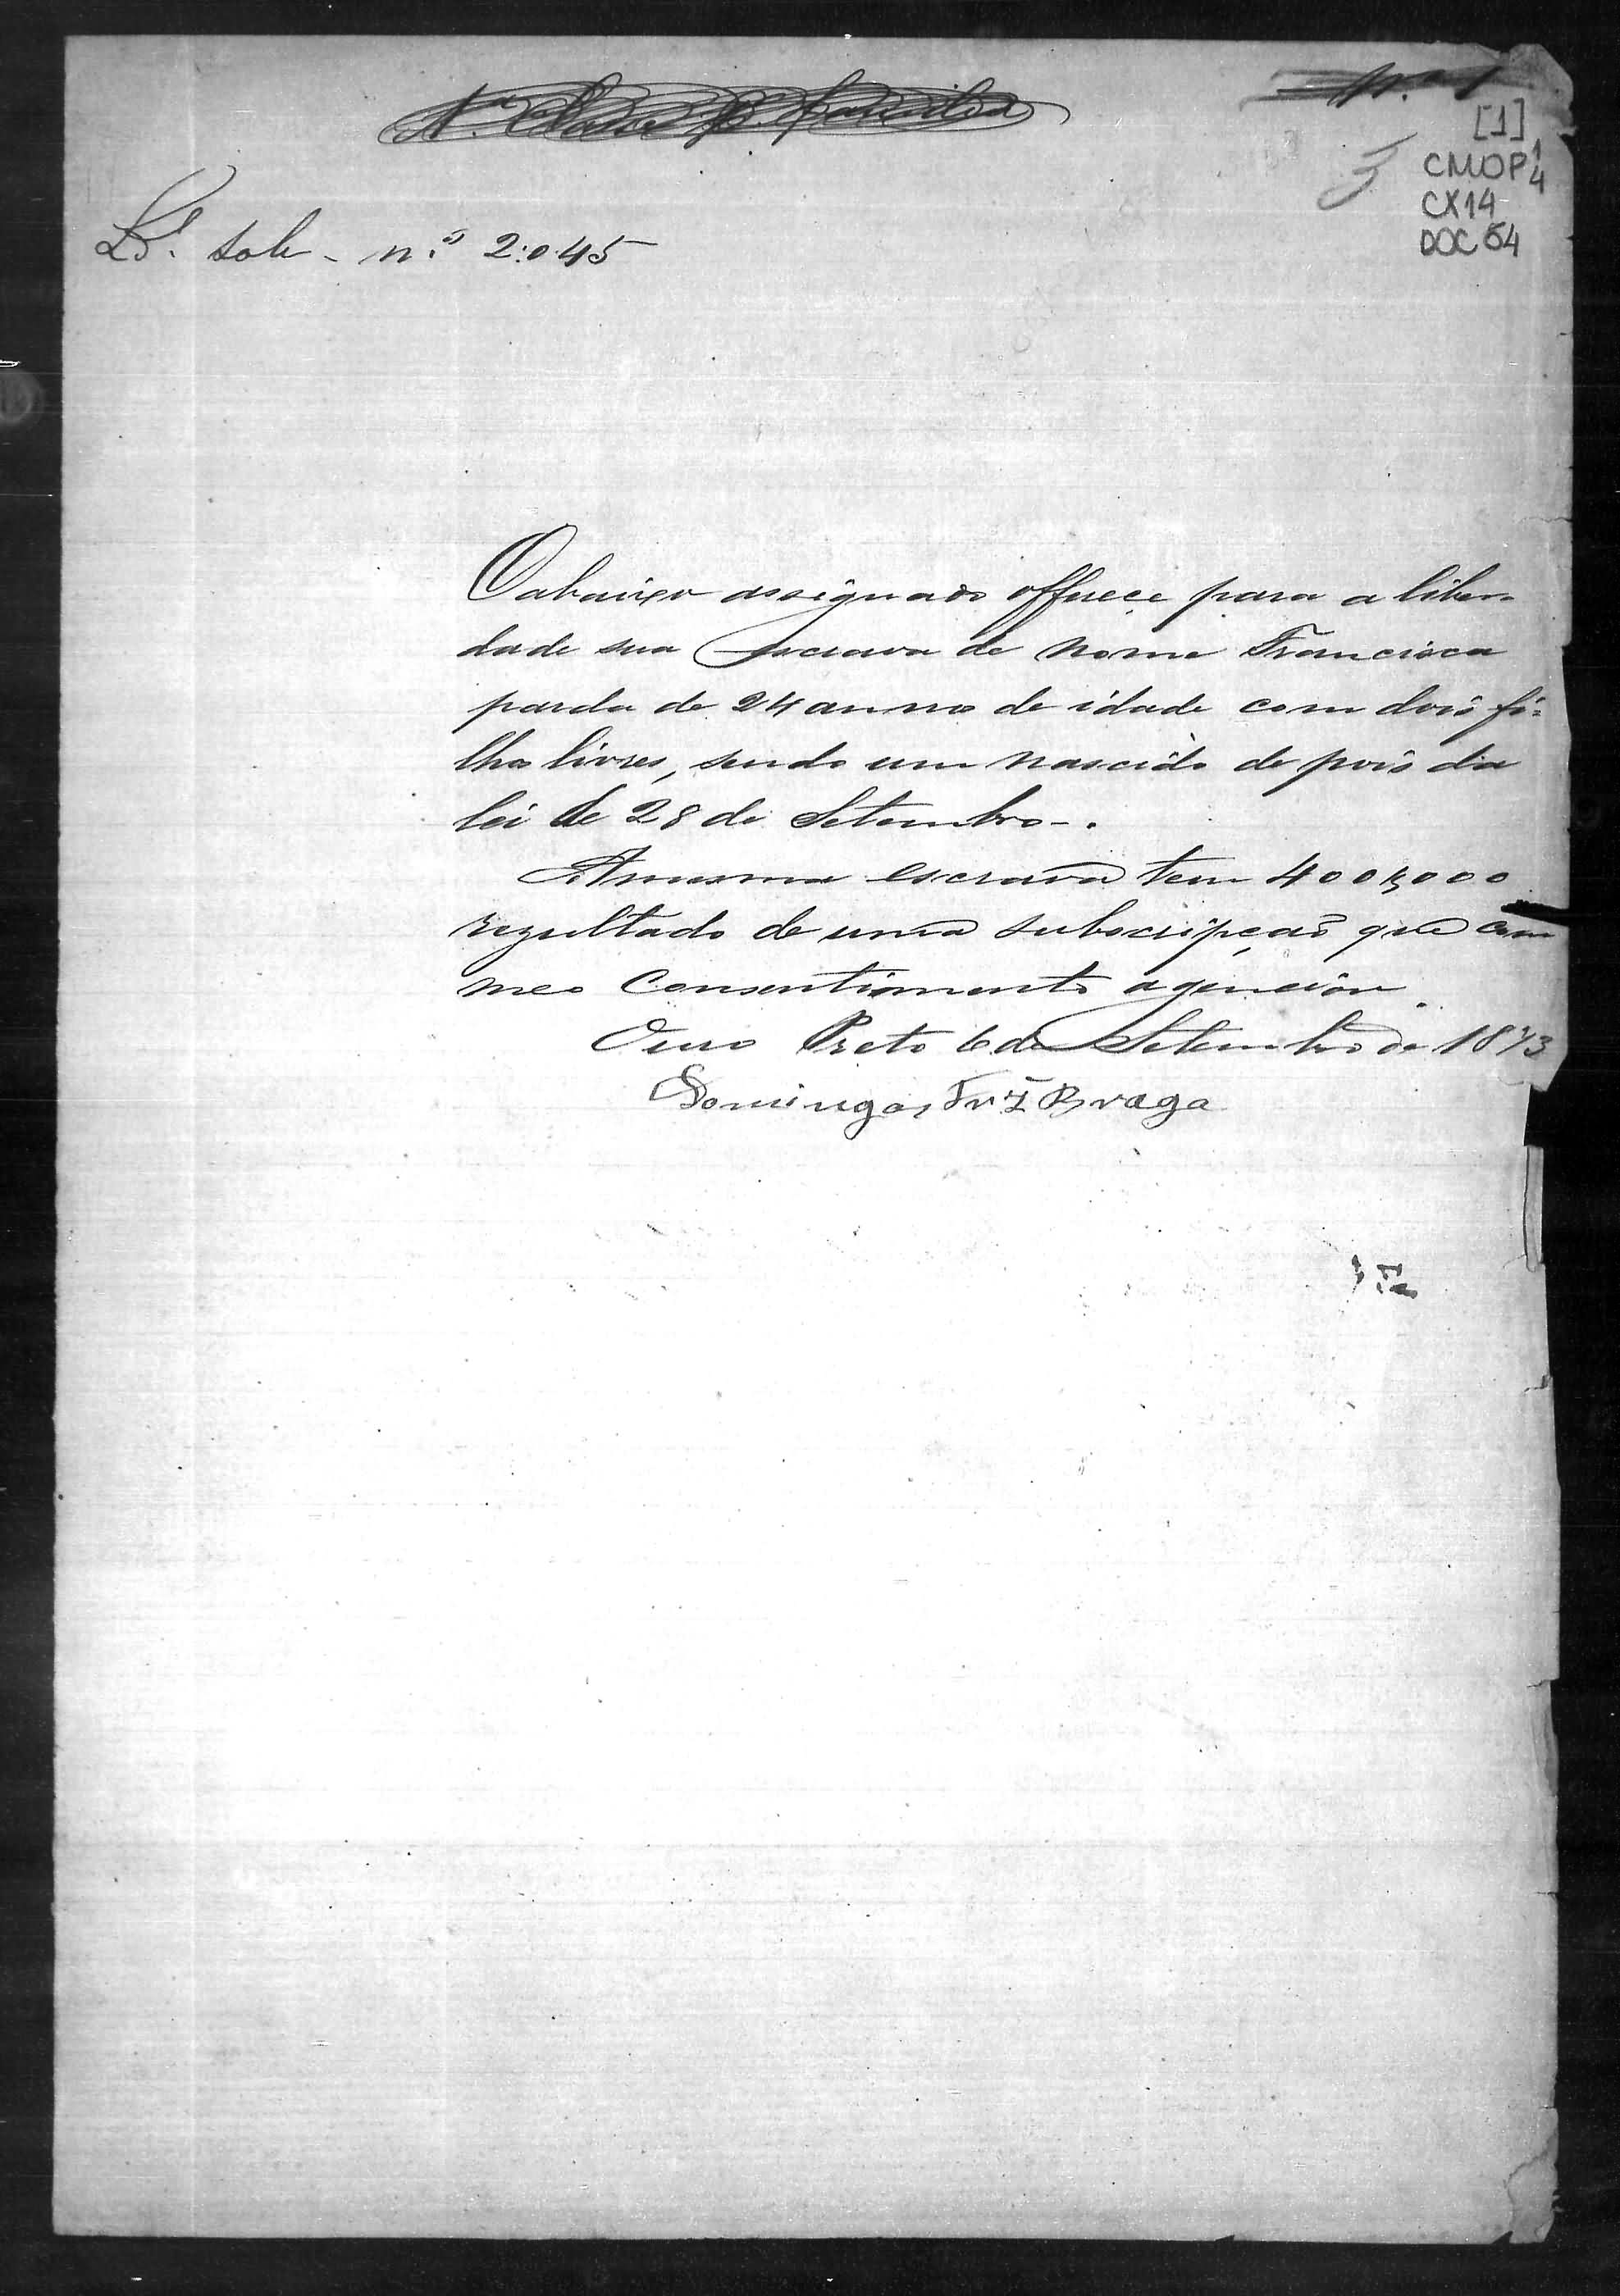 Nº 1
[1]
CMOP 1/4
3
CX14
DOC 54
Lº sob nº 2:045
O abaixo assignado offerece para a liber-
dade sua Escrava de nome Francisca
parda de 24 annos de idade com dois fi=
lhos livres, sendo um nascido de pois da
lei de 28 de Setembro-.
A mesma escrava tem 400$000
rezultado de uma subscripçaõ que com
meo Consentimento agenciou.
Ouro Preto 6 de Setembro de 1873
Domingos Frz Braga